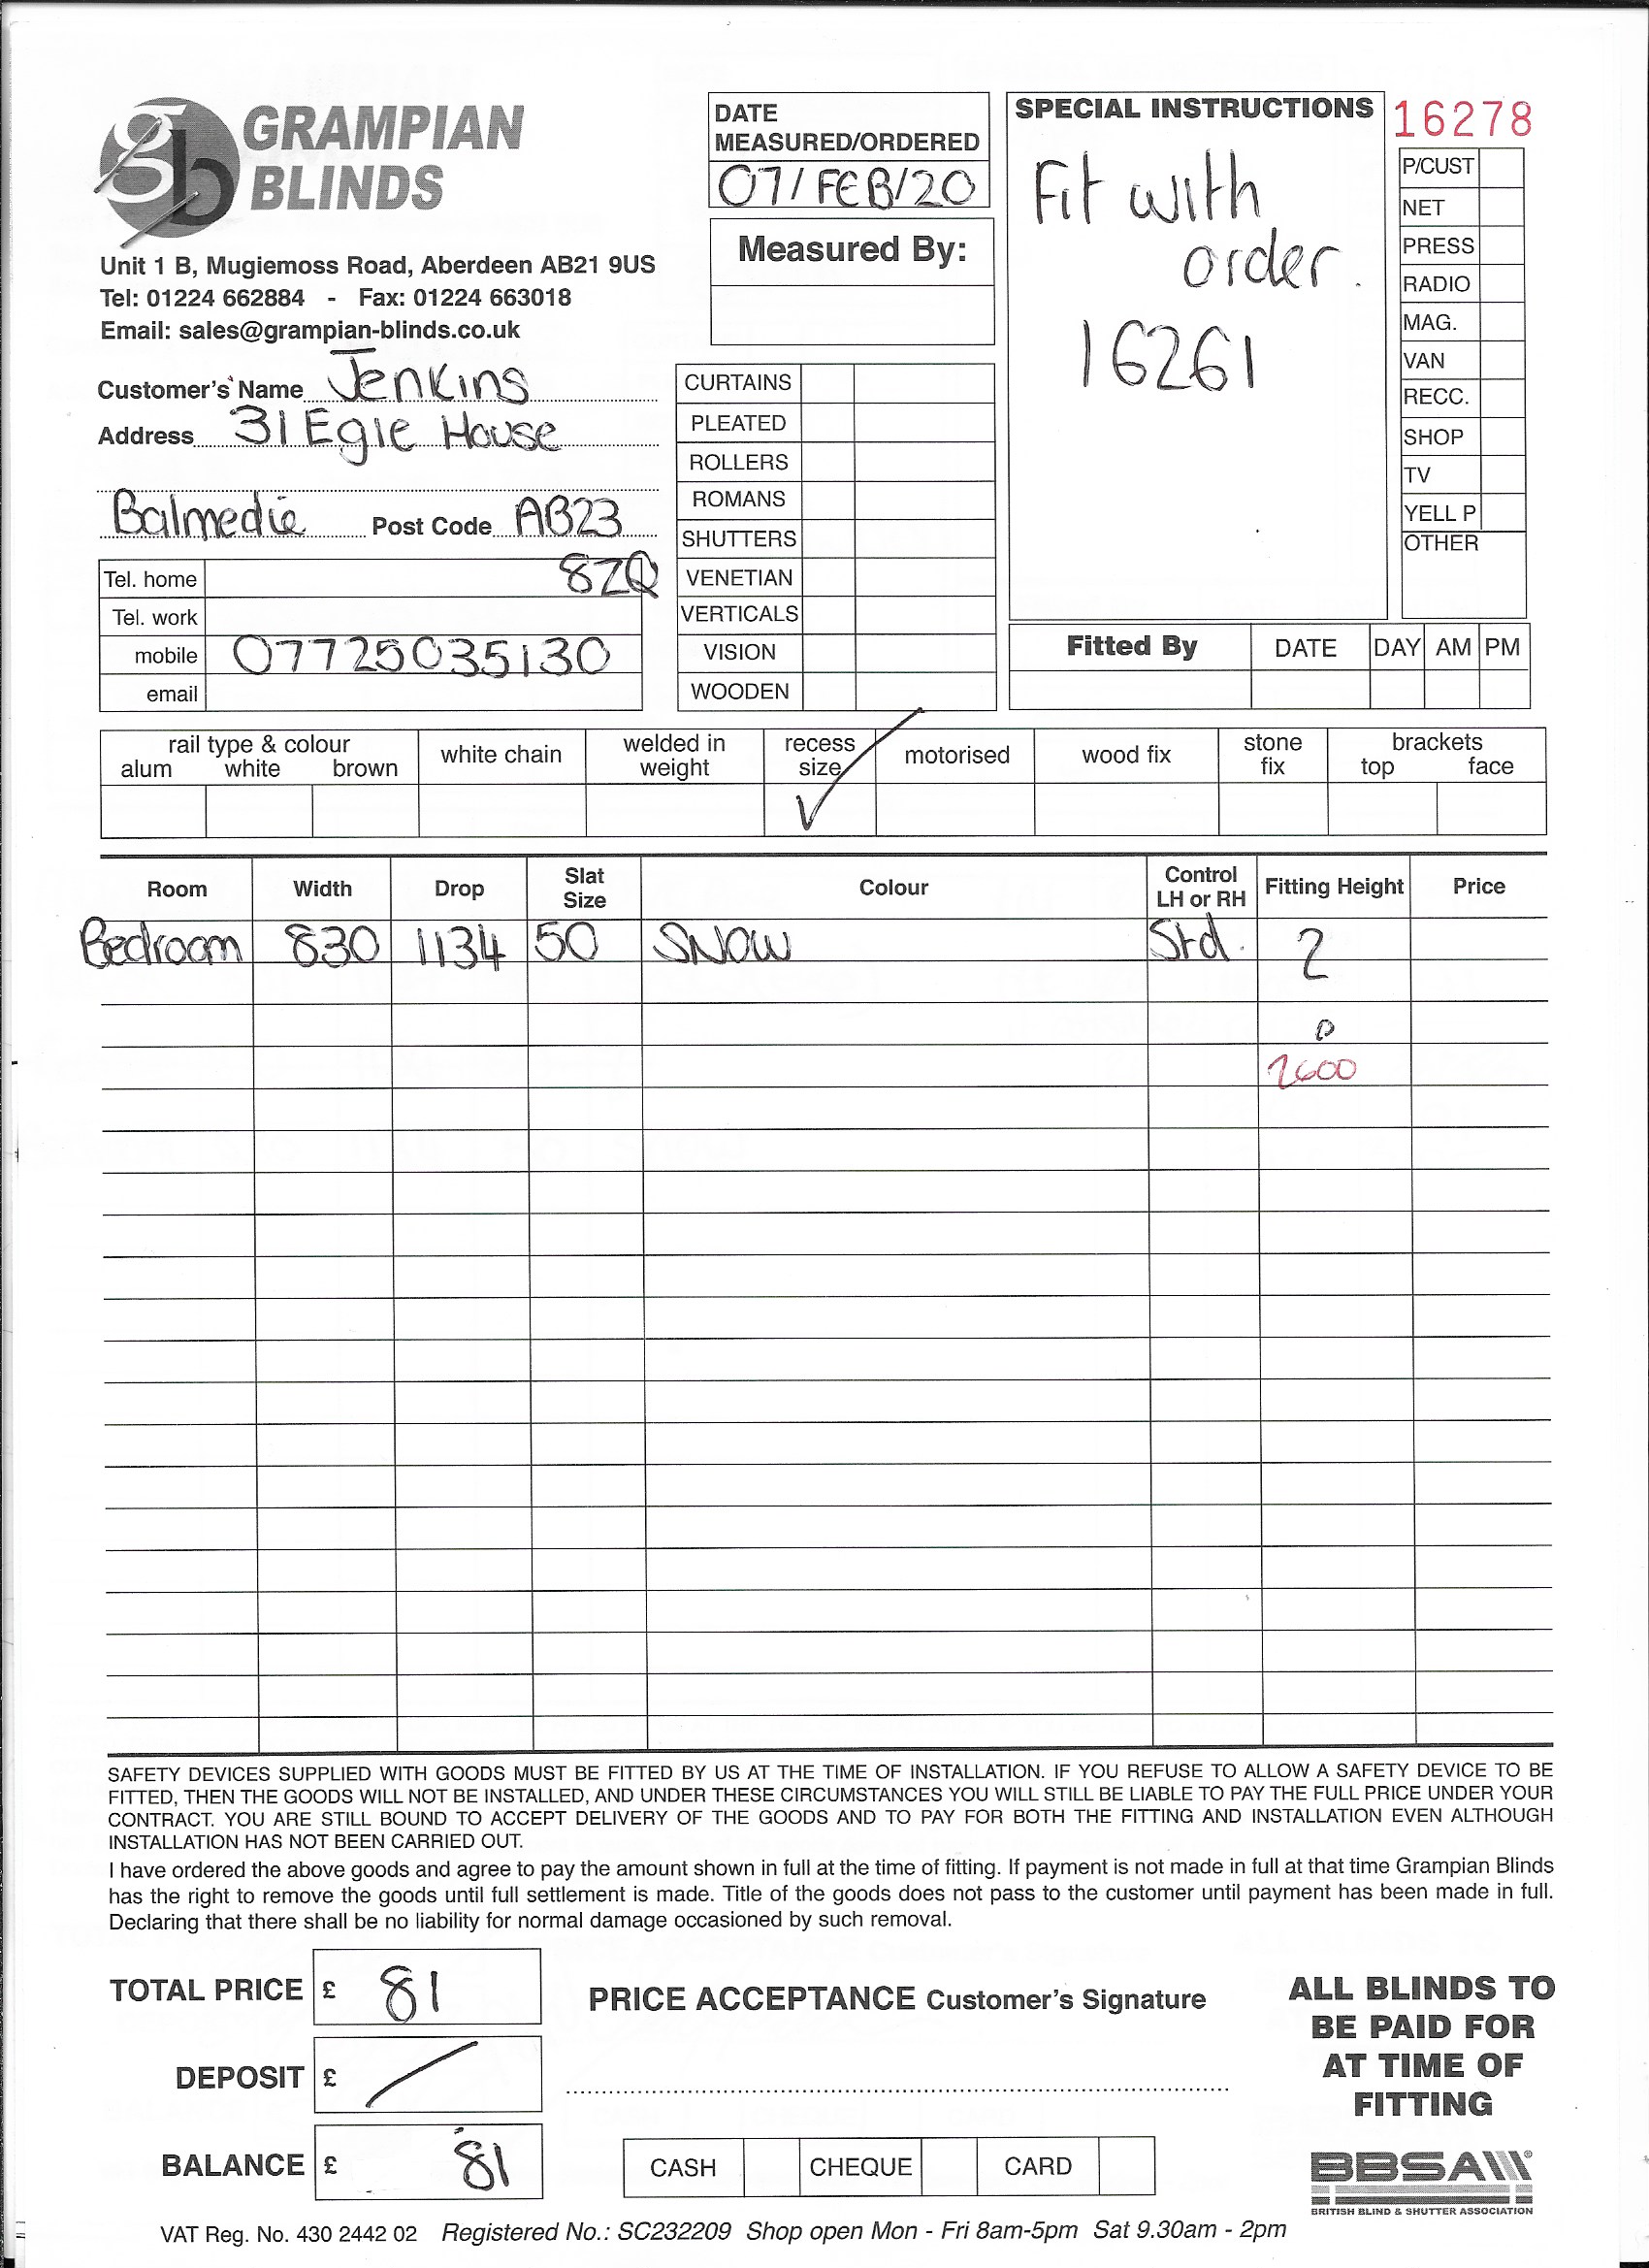 gb GRAMPIAN
BLINDS
Unit 1 B, Mugiemoss Road, Aberdeen AB21 9US
Tel: 01224 662884 - Fax: 01224 663018
Email: sales@grampian-blinds.co.uk
Customer's Name Jenkins
Address 31 Egie House
Balmedie Post Code AB23
8ZQ
Tel. home
Tel. work
mobile 07725035130
email
DATE
MEASURED/ORDERED
07/FEB/20
Measured By:
CURTAINS
PLEATED
ROLLERS
ROMANS
SHUTTERS
VENETIAN
VERTICALS
VISION
WOODEN
SPECIAL INSTRUCTIONS
Fit with
order.
16261
16278
P/CUST
NET
PRESS
RADIO
MAG.
VAN
RECC.
SHOP
TV
YELL P
OTHER
Fitted By DATE DAY AM PM
rail type & colour
alum white brown
white chain
welded in
weight
recess
size
✓
motorised
wood fix
stone
fix
brackets
top face
Room Width Drop Slat Size Colour Control LH or RH Fitting Height Price
Bedroom 830 1134 50 SNOW Std. 2
2600
SAFETY DEVICES SUPPLIED WITH GOODS MUST BE FITTED BY US AT THE TIME OF INSTALLATION. IF YOU REFUSE TO ALLOW A SAFETY DEVICE TO BE
FITTED, THEN THE GOODS WILL NOT BE INSTALLED, AND UNDER THESE CIRCUMSTANCES YOU WILL STILL BE LIABLE TO PAY THE FULL PRICE UNDER YOUR
CONTRACT. YOU ARE STILL BOUND TO ACCEPT DELIVERY OF THE GOODS AND TO PAY FOR BOTH THE FITTING AND INSTALLATION EVEN ALTHOUGH
INSTALLATION HAS NOT BEEN CARRIED OUT.
I have ordered the above goods and agree to pay the amount shown in full at the time of fitting. If payment is not made in full at that time Grampian Blinds
has the right to remove the goods until full settlement is made. Title of the goods does not pass to the customer until payment has been made in full.
Declaring that there shall be no liability for normal damage occasioned by such removal.
TOTAL PRICE £ 81
DEPOSIT £ /
BALANCE £ 81
PRICE ACCEPTANCE Customer's Signature
CASH CHEQUE CARD
ALL BLINDS TO
BE PAID FOR
AT TIME OF
FITTING
BBSA
BRITISH BLIND & SHUTTER ASSOCIATION
VAT Reg. No. 430 2442 02 Registered No.: SC232209 Shop open Mon - Fri 8am-5pm Sat 9.30am - 2pm